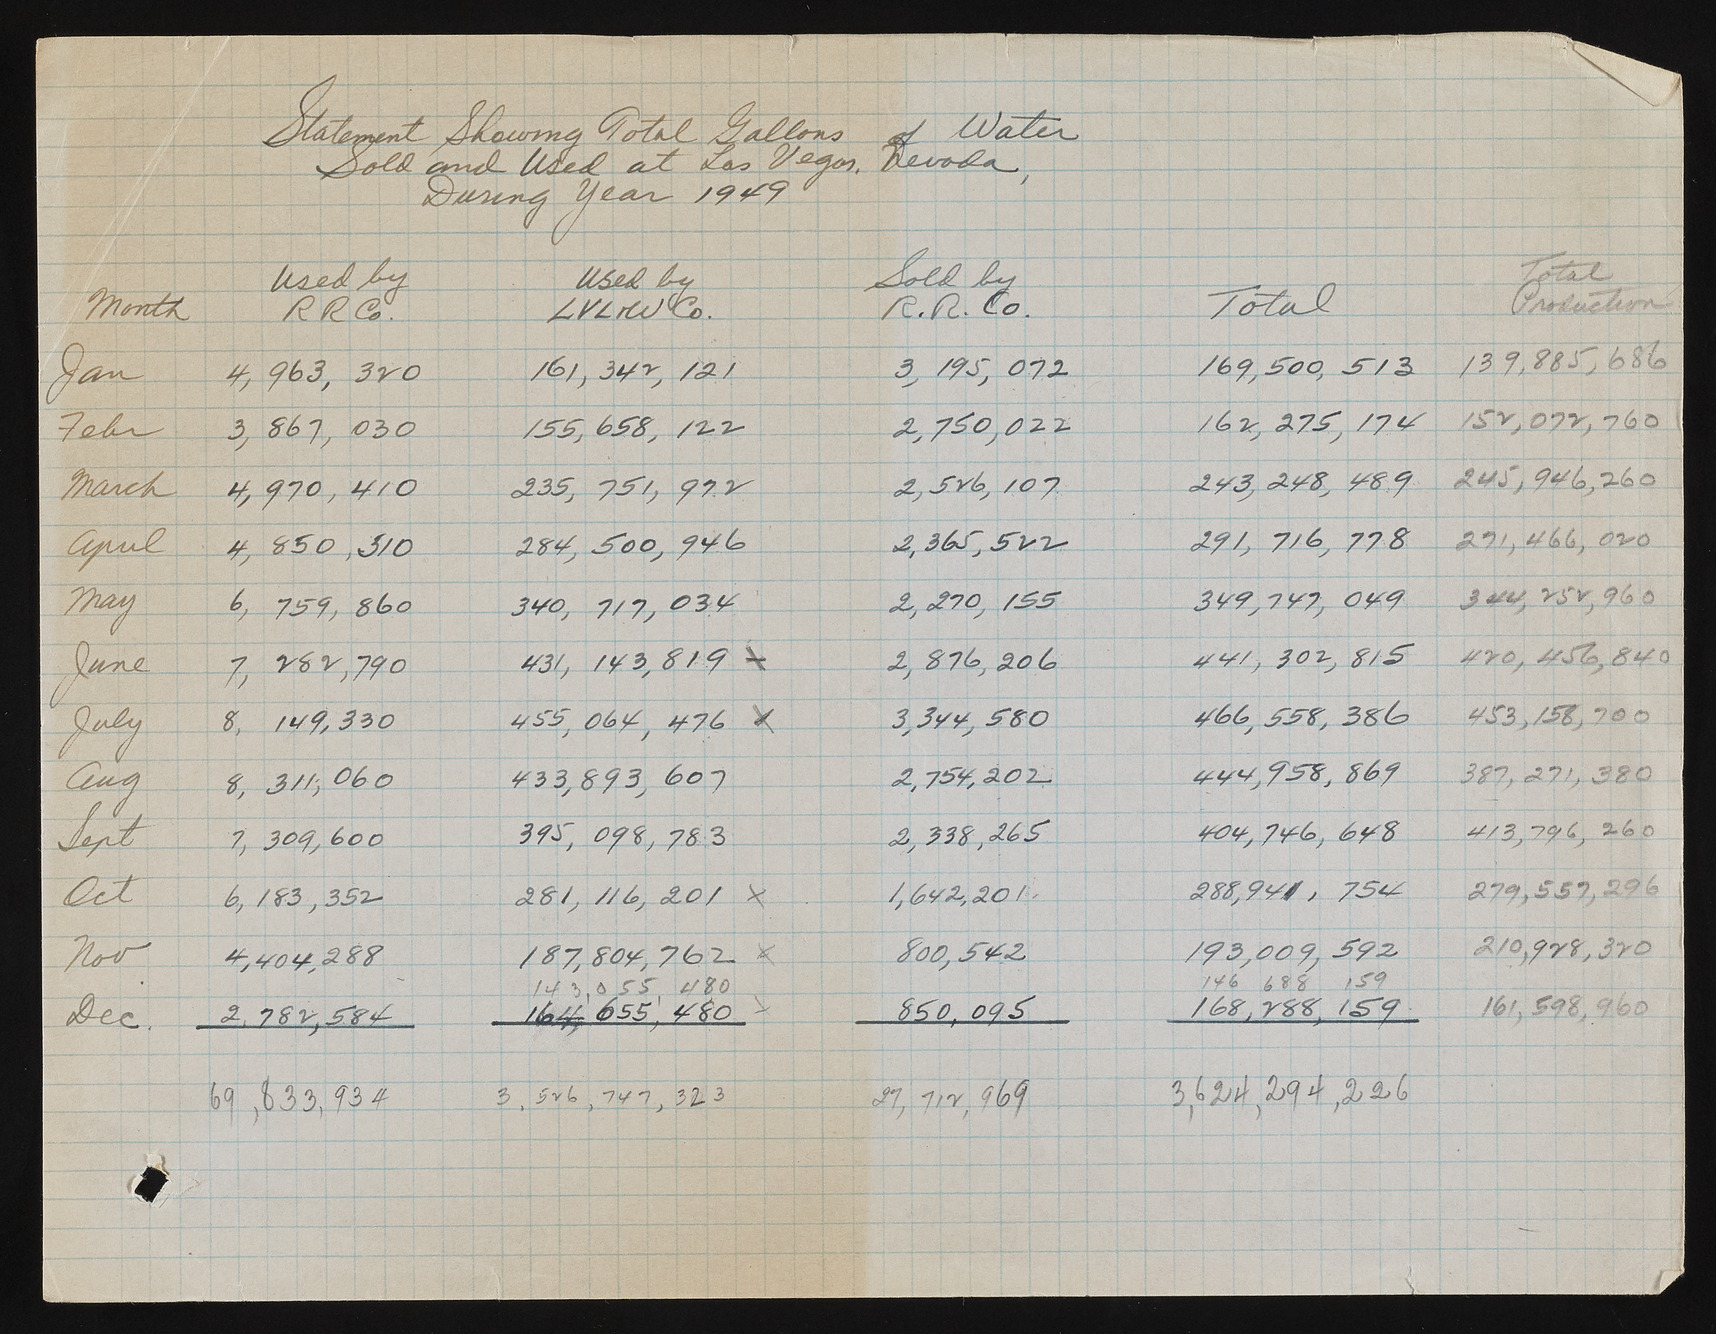 Statement Showing Total Gallons of Water
Sold and Used at Las Vegas, Nevada,
During Year 1949
Month Used by R R Co. Used by LVL+W Co. Sold by R. R. Co. Total Total Production
Jan 4,963,320 161,342,121 3,195,072 169,500,513 139,885,686
Febr 3,867,030 155,658,122 2,750,022 162,275,174 152,072,760
March 4,970,410 235,751,972 2,526,107 243,248,489 245,946,260
April 4,850,310 284,500,946 2,365,522 291,716,778 271,466,020
May 6,759,860 340,717,034 2,270,155 349,747,049 344,252,960
June 7,282,790 431,143,819 x 2,876,206 441,302,815 420,456,840
July 8,149,330 455,064,476 x 3,344,580 466,558,386 453,158,700
Aug 8,311,060 433,893,607 2,754,202 444,958,869 387,271,380
Sept 7,309,600 395,098,783 2,338,265 404,746,648 413,796,260
Oct 6,183,352 281,116,201 x 1,642,201 288,941,754 279,557,296
Nov 4,404,288 187,804,762 x 800,542 193,009,592 210,928,320
143,055 480 146 688 159
Dec. 2,782,584 164,655,480 850,095 168,288,159 161,598,960
69,833,934 3,526,747,323 27,712,969 3,624,294,226